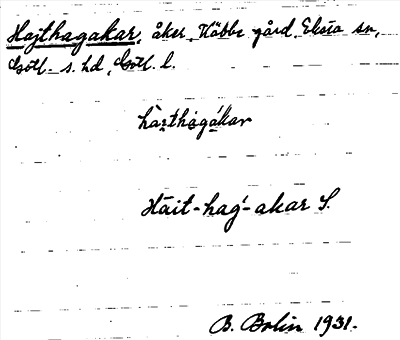 Hajthagakar, åker, Kåbbe gård, Eksta sn,
Gotl. s. hd, Gotl. l.
hàɪthàgákar
Häit-hag-akar S.
B. Bolin 1931.